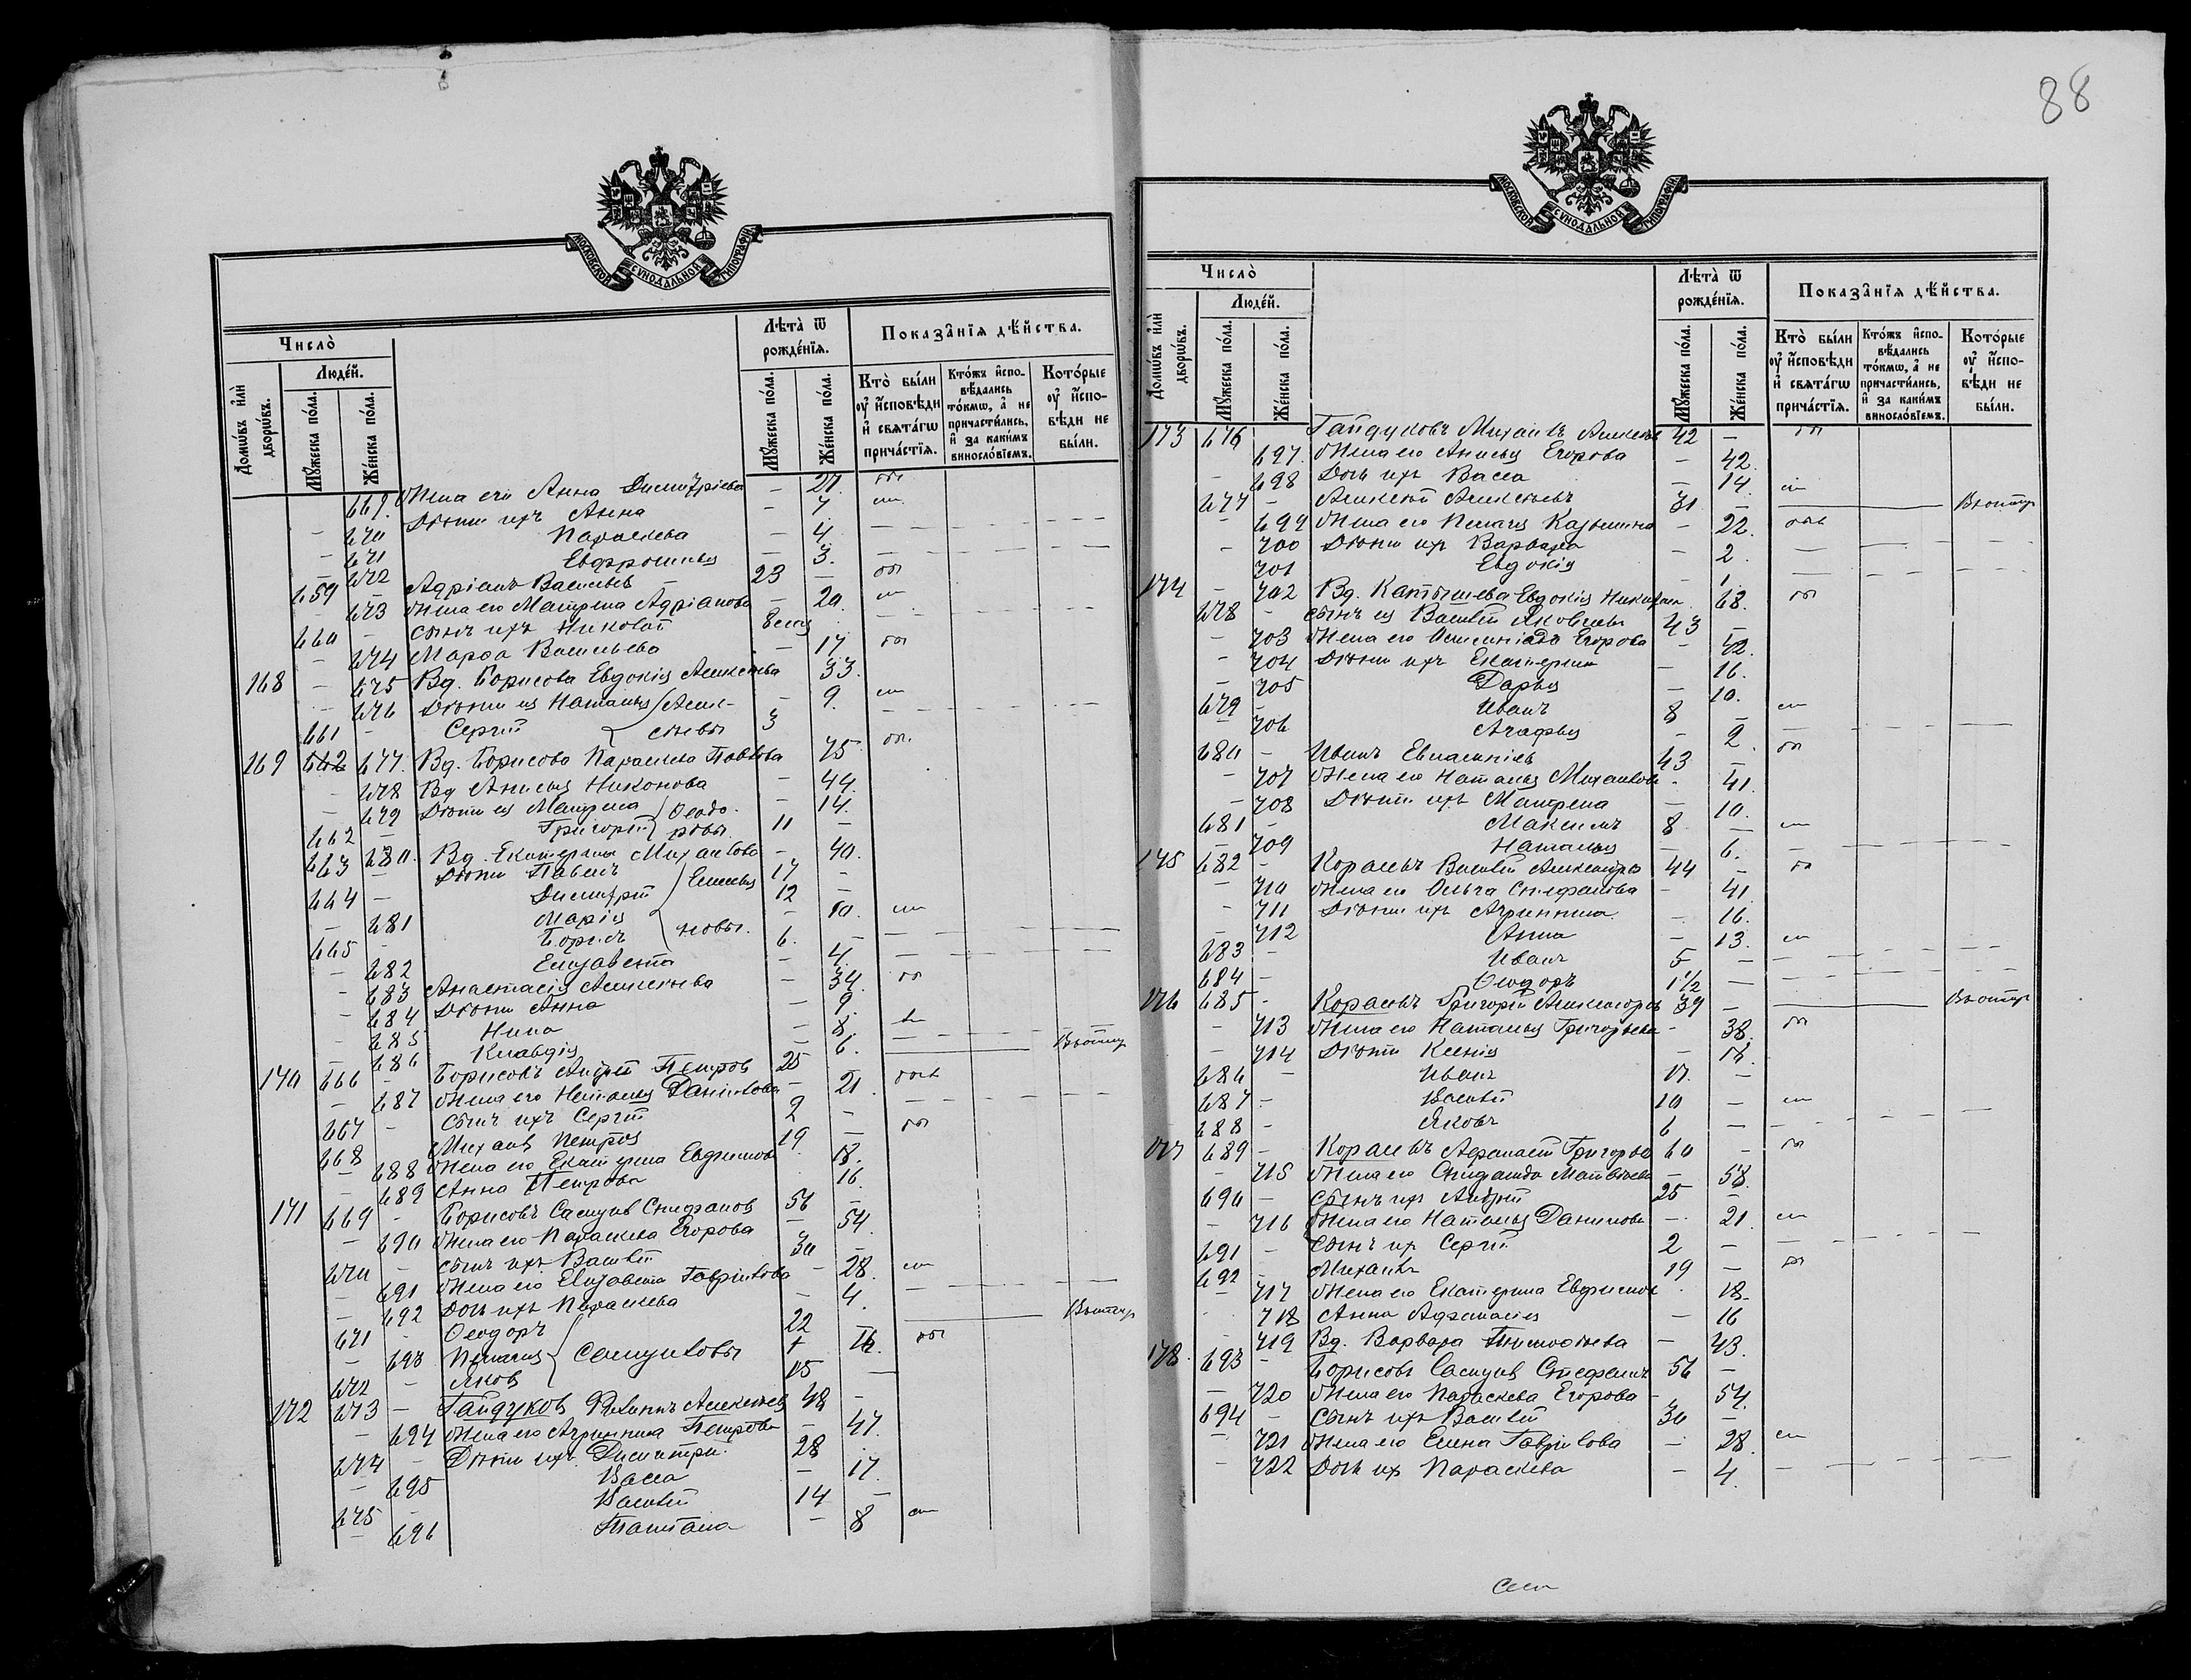 88
МОСКОВСКОЙ СѴНОДАЛЬНОЙ ТИПОГРАФІИ
Число̀
Домѡ́въ и҆лѝ дворѡ́въ.
Люде́й.
Мꙋ́жеска по́ла.
Же́нска по́ла.
Лѣ́та ѿ рожде́нїѧ.
Мꙋ́жеска по́ла.
Же́нска по́ла.
Показа̑нїѧ дѣ́йства.
Кто̀ бы́ли ᲂу҆ и҆́сповѣди и҆ свѧта́гѡ прича́стїѧ.
Кто́жъ и҆спо­вѣ́дались то́кмѡ, а҆ не причасти́лись, и҆ за каки́мъ винословїемъ.
Кото́рые ᲂу҆ и҆́сповѣди не бы́ли.
669. Жена его Анна Димитріева - 27.
- 670 Дѣти ихъ Анна - 7
- 671 Параскева - 4.
- 672 Евфросинья - 3.
659 - Адріанъ Васильевъ 23 -
673 Жена его Матрена Адріанова - 20.
660 - сынъ ихъ
- 674 Марѳа Васильева - 17
168 - 675 Вд. Борисова Евдокія Алексѣева 33.
- 676 Дѣти ея Наталья - 9.
661 - Сергій 3
169 662 677. Вд. Борисова Параскева Павлова 75
- 678 Вд Анисья Никонова - 44.
- 679 Дѣти ея Матрена Ѳеодо- - 14.
662 - Григорій ровы. 11 -
663 680. Вд. Екатерина Михаилова - 40.
Дѣти Павелъ 17 -
664 - Димитрій 12 -
- 681 Марія - 10.
665 - Борисъ новы. 6. -
- 682 Елизавета - 4.
- 683 Анастасія Алексѣева - 34.
- 684 Дѣти Анна - 9
- 685 Нина - 8.
- 686 Клавдія - 6.
170 666 - Борисовъ Андрей Петровъ 25
- 687 Жена его Наталья Даниилова - 21.
667 - Сынъ ихъ Сергій 2 -
668 Михаилъ Петровъ 19 -
- 688 Жена его Екатерина Евфимова 18.
- 689 Анна Петрова 16.
171 669 - Борисовъ Самуилъ Стефановъ 56 -
- 690 Жена его Параскева Егорова - 54.
670 - сынъ ихъ Василій 30 -
- 691 Жена его Елизавета Гавриилова - 28.
- 692 Дочь ихъ Параскева - 4.
671 - Ѳеодоръ 22 -
- 693 Пелагія Самуиловы 16.
672 - Яковъ 15 -
172 673 - Гайдуковъ Филиппъ Алексѣевъ 48 -
- 694 Жена его Агриппина Петрова - 47.
674 - Дѣти ихъ Димитрій 28
- 695 Васса - 17.
675 - Василій 14 -
- 696 Татіана - 8
173 676 Гайдуковъ Михаилъ Алексѣевъ 42 -
697. Жена его Анисья Егорова - 42.
- 698 Дочь ихъ Васса - 14.
677 - Алексѣй Алексѣевъ 31 -
- 699 Жена его Пелагія - 22.
- 700 Дѣти ихъ Варвара - 2
701 Евдокія - 1.
174 - 702 Вд. Катышева Евдокія 68.
678 - сынъ ея Василій Яковлевъ 43 -
- 703 Жена его Егорова - 42.
- 704 Дѣти ихъ Екатерина - 16.
- 705 Дарья - 10.
679 - Иванъ 8 -
- 706 Агафья - 2.
680 - Иванъ 43 -
- 707 Жена его Наталья Михаилова - 41.
- 708 Дѣти ихъ Матрена - 10.
681 - Максимъ 8 -
- 709 Наталья - 6.
175 682 - Королевъ Василій Александровъ 44 -
- 710 Жена его Ольга Стефанова - 41.
- 711 Дѣти ихъ Агриппина. - 16.
- 712 Анна - 13.
683 - Иванъ 5 -
684 - Ѳеодоръ 1½ -
176 685 - Королевъ Григорій Александровъ 39 -
- 713 Жена его Наталья Григорьева - 38.
- 714 Дѣти Ксенія - 18.
686 - Иванъ 17. -
687 - Василій 10 -
688 - Яковъ 6 -
177 689 - Королевъ Афанасій Григорьевъ 60 -
- 715 Жена его Матвѣева - 58.
690 - Сынъ ихъ Андрей 25 -
- 716 Жена его Наталья Даниилова - 21.
691 - Сынъ их Сергій 2 -
692 - Михаилъ 19 -
- 717 Жена его Екатерина Евфимова 18.
718 Анна Афанасія - 16
- 719 Вд. Варвара Тимоѳеева - 43.
178. 693 - Борисовъ Самуилъ Стефанъ 56 -
- 720 Жена его Параскева Егорова - 54.
694 - Сынъ ихъ Василій 30 -
- 721 Жена его Елена Гавриилова - 28.
- 722 Дочь их Параскева - 4.